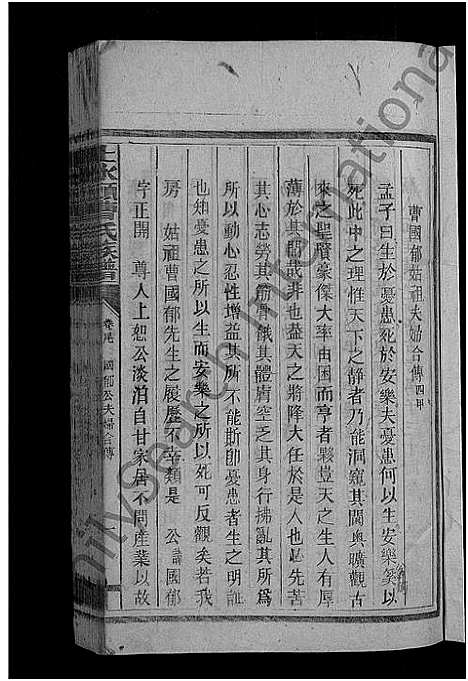 曹國郁姑祖夫婦合傳四甲
孟子曰生於憂患死於安樂夫憂患何以生安樂奚以
死此中之理惟天下之靜者乃能洞窺其閫奧曠觀古
來之聖賢豪傑大率由困而亨者夥豈天之生人有厚
薄於其間哉非也蓋天之將降大任於是人也必先苦
其心志勞其筋骨餓其體膚空乏其身行拂亂其所爲
所以動心忍性增益其所不能斯卽憂患者生之明証
也知憂患之所以生而安樂之所以死可反觀矣若我
房 姑祖曹國郁先生之履歷不辛類是 公諱國郁
字正開 尊人上恕公淡泊自甘家居不問産業以故
上水頭曹氏族譜
卷尾 國郁公夫婦合傳 一
Family Search International